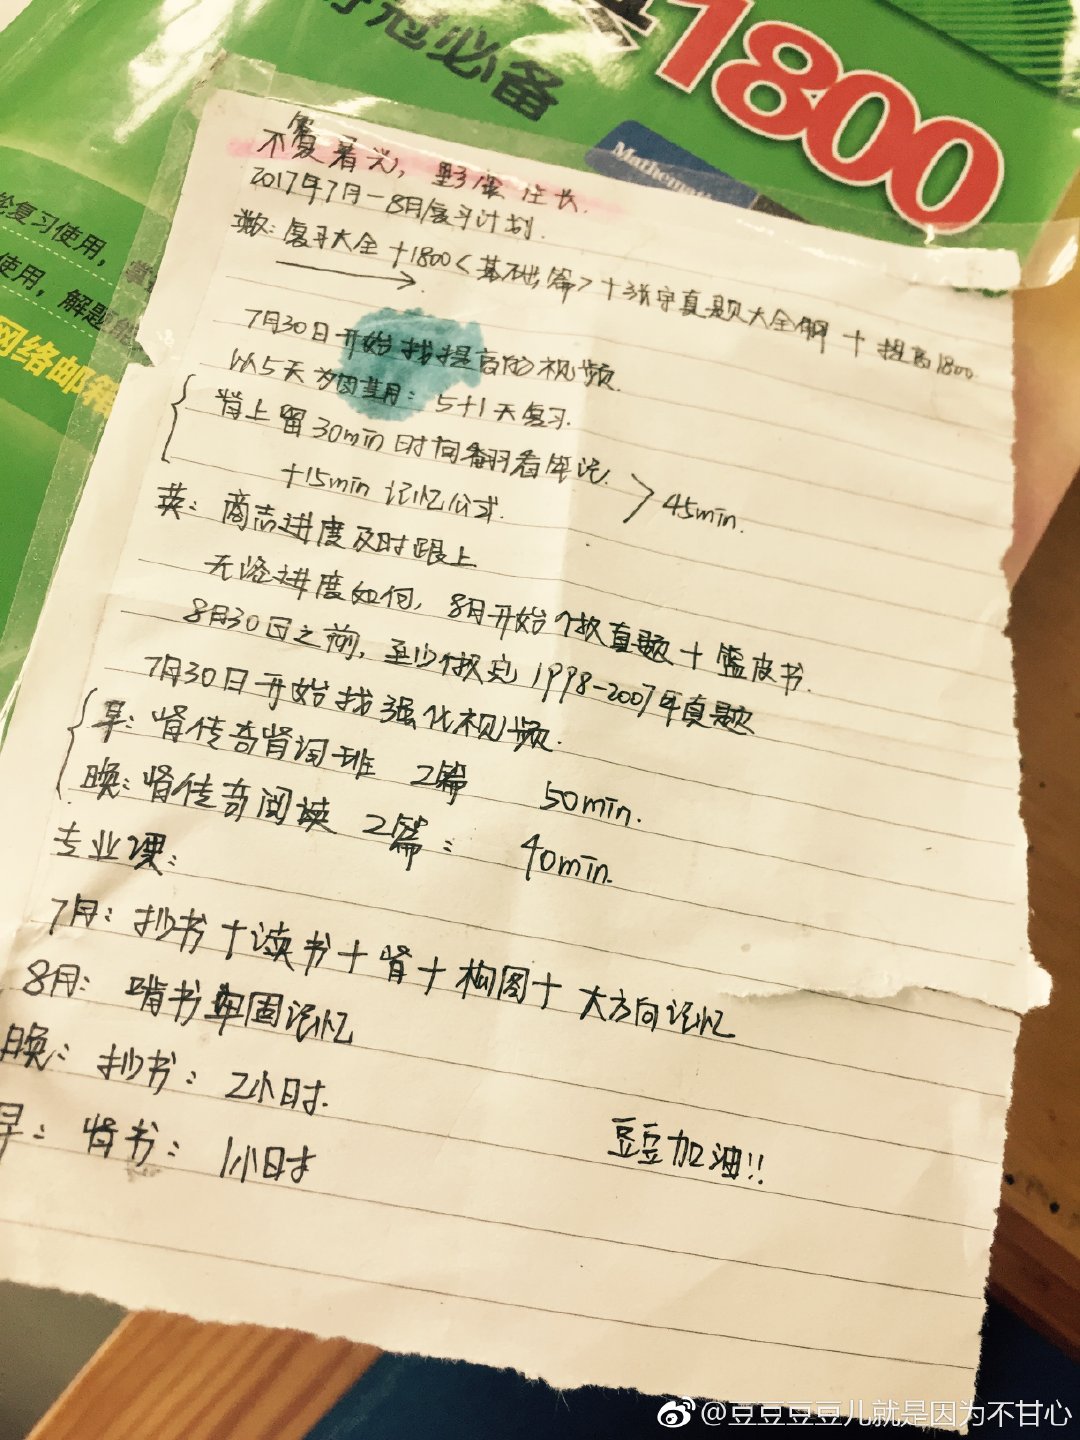 必备
1800
Mathemat
轮复习使用,
使用,解题能
网络邮箱
2017年7月-8月复习计划.
数:复习大全+1800<基础篇>+张宇真题大全解+提高1800
7月30日开始找提高的视频.
以5天为周期:5+1天复习.
晚上留30min时间翻看笔记.
+15min 记忆公式.
45min.
英:商志进度及时跟上
无论进度如何,8月开始做真题+蓝皮书.
8月30日之前,至少做完1998-2007年真题
7月30日开始找强化视频.
早:背传奇背词班 2篇 50min.
晚:背传奇阅读 2篇: 40min.
专业课:
7月:抄书+读书+背+构图+大方向记忆
8月:啃书牢固记忆
晚:抄书:2小时.
早:背书:1小时
豆豆加油!!
@豆豆豆豆儿就是因为不甘心